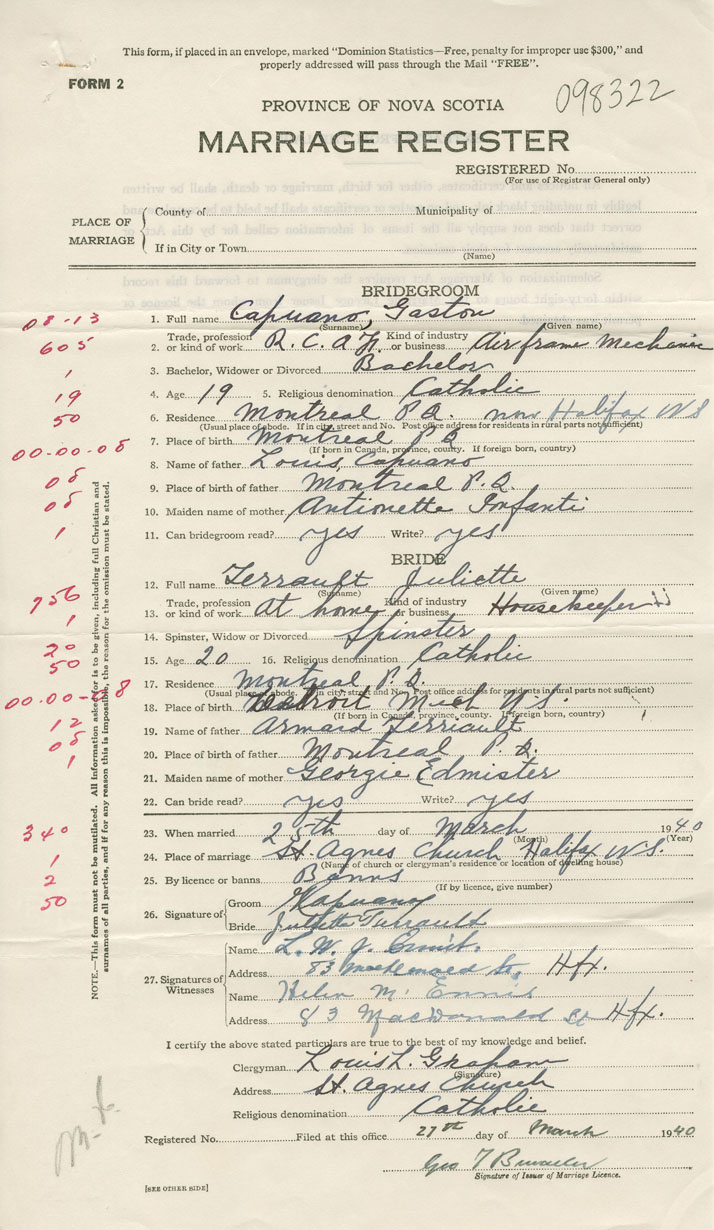 This form, if placed in an envelope, marked "Dominion Statistics—Free, penalty for improper use $300," and
properly addressed will pass through the Mail "FREE".
FORM 2
098322
PROVINCE OF NOVA SCOTIA
MARRIAGE REGISTER
REGISTERED No.
(For use of Registrar General only)
PLACE OF MARRIAGE
County of Municipality of
If in City or Town
(Name)
BRIDEGROOM
08-13 1. Full name Capuano, Gaston
(Surname) (Given name)
605 2. Trade, profession or kind of work R.C.A.F. Kind of industry or business Air frame Mechanic
1 3. Bachelor, Widower or Divorced Bachelor
19 4. Age 19 5. Religious denomination Catholic
50 6. Residence Montreal P.Q. now Halifax NS
(Usual place of abode. If in city, street and No. Post office address for residents in rural parts not sufficient)
00-00-08 7. Place of birth Montreal P.Q
(If born in Canada, province, county. If foreign born, country)
8. Name of father Louis, Capuano
08 9. Place of birth of father Montreal P.Q.
08 10. Maiden name of mother Antionette Infanti
1 11. Can bridegroom read? yes Write? yes
BRIDE
12. Full name Terrault Juliette
(Surname) (Given name)
756 13. Trade, profession or kind of work At home Kind of industry or business Housekeeper
1 14. Spinster, Widow or Divorced Spinster
20 15. Age 20 16. Religious denomination Catholic
50 17. Residence Montreal P.Q.
(Usual place of abode. If in city, street and No. Post office address for residents in rural parts not sufficient)
00-00-08 18. Place of birth Detroit Mich U.S.
(If born in Canada, province, county. If foreign born, country)
12 19. Name of father Armand Terriault
08 20. Place of birth of father Montreal P.Q.
1 21. Maiden name of mother Georgie Edmister
22. Can bride read? yes Write? yes
340 23. When married 25th day of March 1940
(Month) (Year)
1 24. Place of marriage St Agnes Church Halifax N.S.
(Name of church or clergyman's residence or location of dwelling house)
2 25. By licence or banns Banns
(If by licence, give number)
50 26. Signature of
Groom Capuano
Bride Juliette Terrault
27. Signatures of Witnesses
Name L. W. J. Ennis.
Address 83 MacDonald St, Hfx.
Name Helen M. Ennis
Address 83 MacDonald St Hfx.
I certify the above stated particulars are true to the best of my knowledge and belief.
Clergyman Louis L. Graham
(Signature)
Address St. Agnes Church
Religious denomination Catholic
Registered No. Filed at this office 27th day of March 1940
Geo T
Signature of Issuer of Marriage Licence.
[SEE OTHER SIDE]
NOTE.—This form must not be mutilated. All information asked for is to be given, including full Christian and
surnames of all parties, and if for any reason this is impossible, the reason for the omission must be stated.